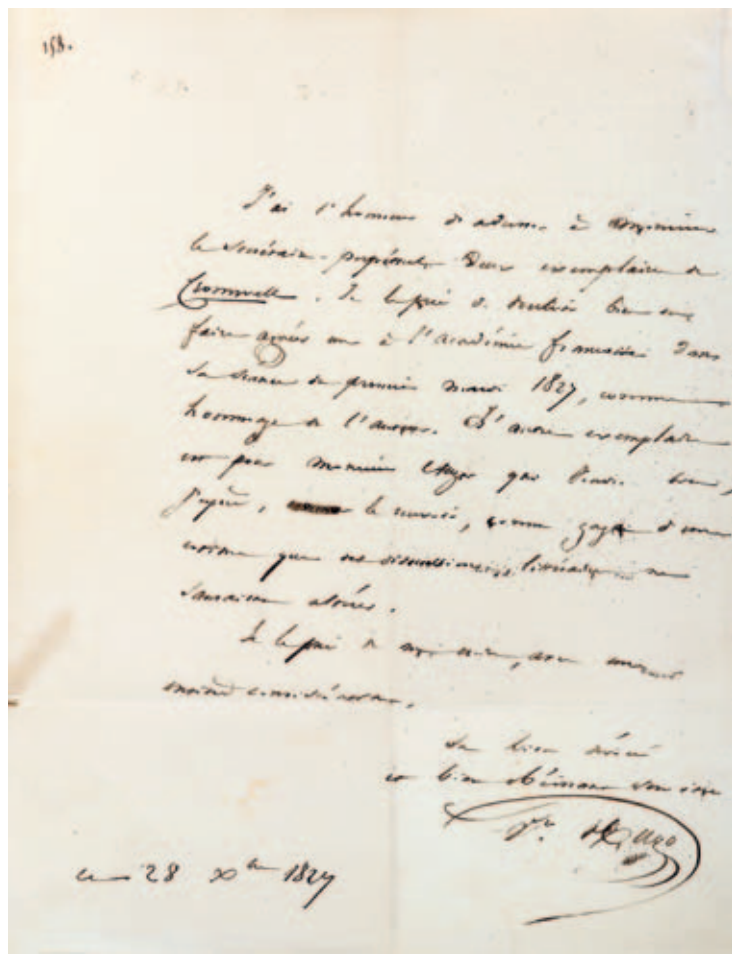 158.
J'ai l'honneur d'adresser à Monsieur
le Secrétaire perpétuel deux exemplaires de
Cromwell. Je le prie de vouloir bien en
faire agréer un à l'Académie française dans
sa séance du premier mardi 1827, comme
hommage de l'auteur. L'autre exemplaire
est pour Monsieur Auger qui voudra bien,
j'espère, le recevoir, comme gage d'une
estime que nos discussions littéraires ne
sauraient altérer.
Je le prie de
considération.
Son bien dévoué
et bien obéissant serviteur
Vr. Hugo
ce 28 Xbre 1827